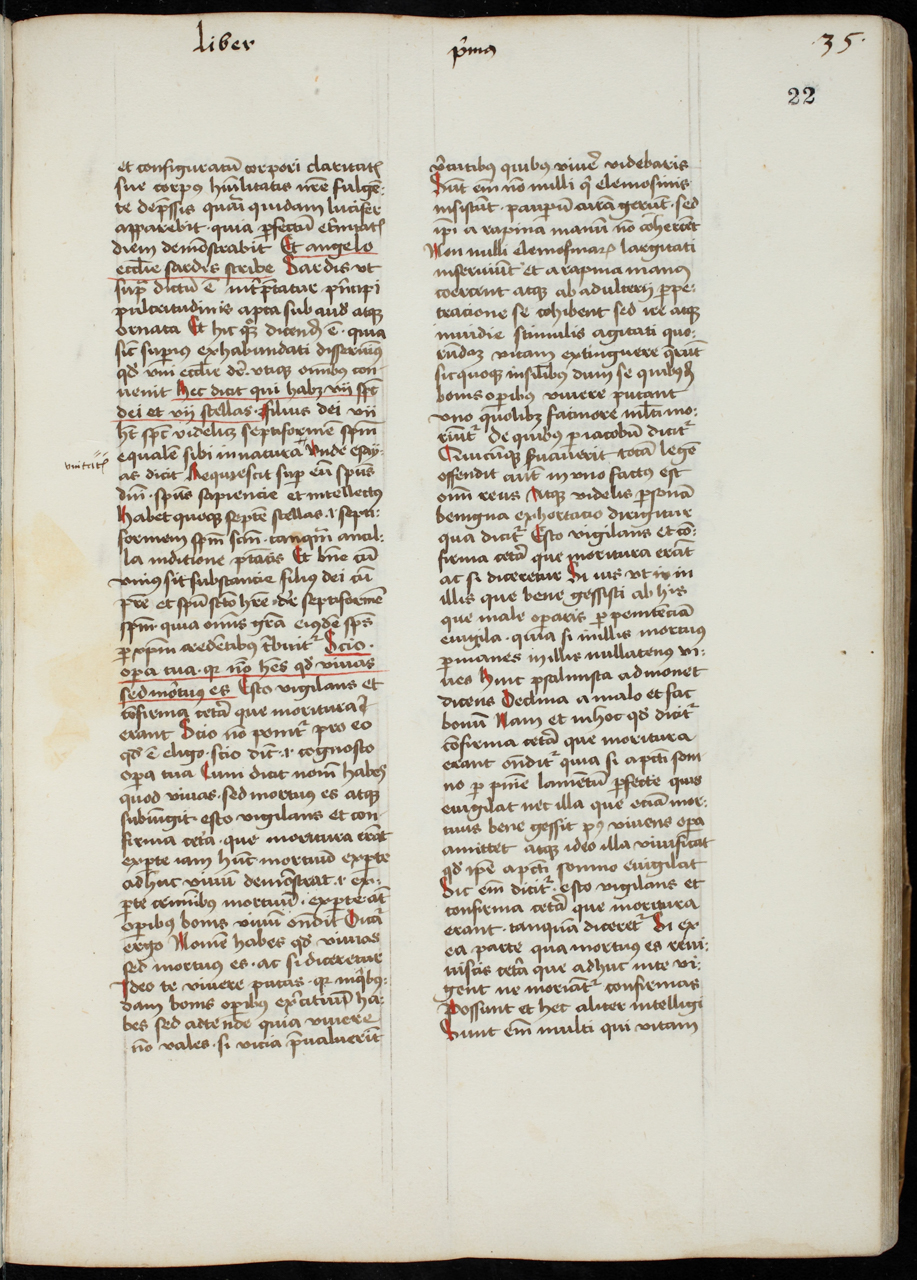 liber
p̄mus
·35·
22
et configuratū corpori claritatꝭ
sue corpus hūilitatis nr̄e fulgē-
te dep̄ssis quasi quidam lucifer
apparebit · quia ꝑfectū et̄nitatꝭ
diem demōstrabit Et angelo
ecclīe sardis scribe Sardis vt
sup̄ dictū ē int̓p̄tatur p̄ncipi
pulcritudinis apta sub aud̓ atqꝫ
ornata Et hic qꝫ dicend̓ ē · quia
sic̄ suꝑius exhabundati disseruiꝰ
qd̓ vni ecclīe dr̄ · vtiqꝫ oīnibus con-
uenit Hec dicit qui habꝫ vij sp̄c
dei et vij stellas · Filius dei vij
ht̄ sp̄c videlicꝫ septiformē sp̄m
equalē sibi in natura Vnde esay-
vnitatꝭ
as dicit Requiescit suꝑ eū sp̄us
dn̄i · sp̄us sapiencie et intellectus
Habet quoqꝫ septē stellas · i · septi-
formem sp̄m scm̄ · tanqm̄ ancil-
la in ditione p̄tatis Et bn̄e cū
vnius sit substancie filius dei cū
pr̄e et sp̄u scto hr̄e · dr̄ septiformē
sp̄m · quia om̄is grā eiusdē sp̄s
ꝑ xp̄m credentibus t̓buit̓ Scio
opera tua · qꝛ nō hēs qd̓ viuas
sed mortuus es Esto vigilans et
cōfirma cetā que moritura
erant Scio nō ponit̓ pro eo
qd̓ ē eligo · scio dic̄t · i · cognosco
opera tua Cum dicit nomē habes
quod viuas · sed mortuus es atqꝫ
subiūgit · esto vigilans et con-
firma cetā · que moritura erāt
ex ꝑte iam hūc mortuū ex ꝑte
adhuc viuū demōstrat · i · ex
ꝑte crimībus mortuū · ex ꝑte aūt
oꝑibus bonis viuū ondit̄ Dicit̓
ergo Nomē habes qd̓ viuas
sed mortuus es · ac si diceretur
Ideo te viuere putas · qꝛ in qͥbus-
dam bonis oꝑibus ex̓citiuū ha-
bes sed adtende quia viuere
nō vales · si vicia p̄ualuerīt
v̓tutibus quibus viuer̓ videbaris
Sūt em̄ nō nulli qͥ elemosinis
insistūt · pauꝑum curā gerūt · sed
ip̄i a rapina manū nō cohercēt
Non nulli elemosinaꝝ largitati
inseruiūt et a rapina manus
coercent atqꝫ ab adulterij ꝑpe-
tracione se cohibent sed ire atqꝫ
inuidie stimulis agitati quo-
rūdaꝫ vitam extinguere q̄rūt
sicquoqꝫ infelibus dum se quibusd̓
bonis oꝑibus viuere putant
vno quolibꝫ facinore mlti mo-
riūt̓ De quibus ꝑ iacobū dicit̓
Quicūqꝫ s̓uauerit totā legē
offendit aut̄ in vno factus est
om̄i reus Atqꝫ videlis ꝑsona
benigna exhortatio dirigitur
qua dicit̓ Esto vigilans et cō-
firma cetā que moritura erāt
ac si diceretur Si vis vt in
illis que bene gessisti ab his
que male operaris ꝑ penitēciā
euigila · quia si in illis mortuus
ꝑmanes in illis nullatenus vi-
ues Hinc psalmista admonet
dicens Declina a malo et fac
bonū Nam et in hoc qd̓ dicit̓
cōfirma cetā que moritura
erant ondit̓ quia si a pcti som
no ꝑ pn̄ie lamētū ꝑfecte quis
euigilat nec illa que etiā mor-
tuus bene gessit pꝰ viuens opa
amittet atqꝫ ideo illa viuificat
qd̓ ip̄e a pcti somno euigilat
Sic em̄ dicit̓ · esto vigilans et
confirma cetā que moritura
erant · tanquā diceret̓ Si ex
ea parte qua mortuus es reui-
uiscis cetā que adhuc in te vi-
gent ne moriāt̓ confirmas
Possunt et hec aliter intelligi
Sunt em̄ multi qui vitam